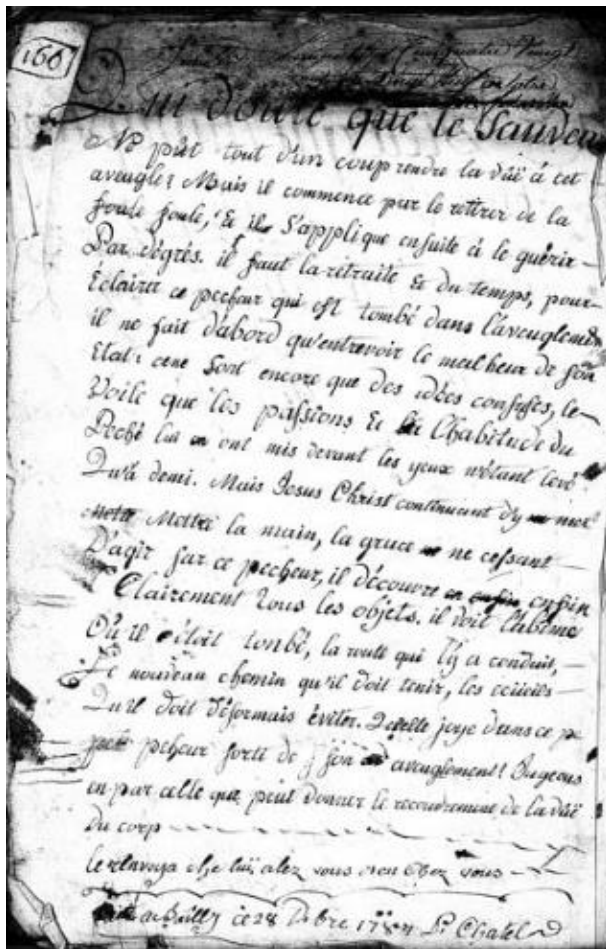 166
Qui doute que le Sauveu
Ne pût tout d'un coup rendre la vüe à cet
aveugle? Mais il commence par le retirer de la
foule foule, & il S'applique ensuite à le guérir
Par dégrés. il faut la retraite & du temps, pour
Eclairer ce pecheur qui est tombé dans l'aveuglem
il ne fait d'abord qu'entrevoir le malheur de son
Etat: ce ne sont encore que des idées confuses, le
Voile que les passions & l'habitude du
Peché lui ont mis devant les yeux n'étant levé
Qu'à demi. Mais Jesus Christ continuant d'y met
Mettre la main, la grace ne cessant
D'agir sur ce pecheur, il découvre enfin enfin
Clairement tous les objets. il voit l'abîme
Où il étoit tombé, la route qui l'y a conduit,
Le nouveau chemin qu'il doit tenir, les ecüeils
Qu'il doit désormais éviter. Quelle joye dans ce p
pecheur sorti de son aveuglement! Jugeons
en par celle que peut donner le recouvrement de la vüe
Du corp
le renvoya chez lui, alez vous en Chez vous
ce 28 Xbre 1784 Chatel